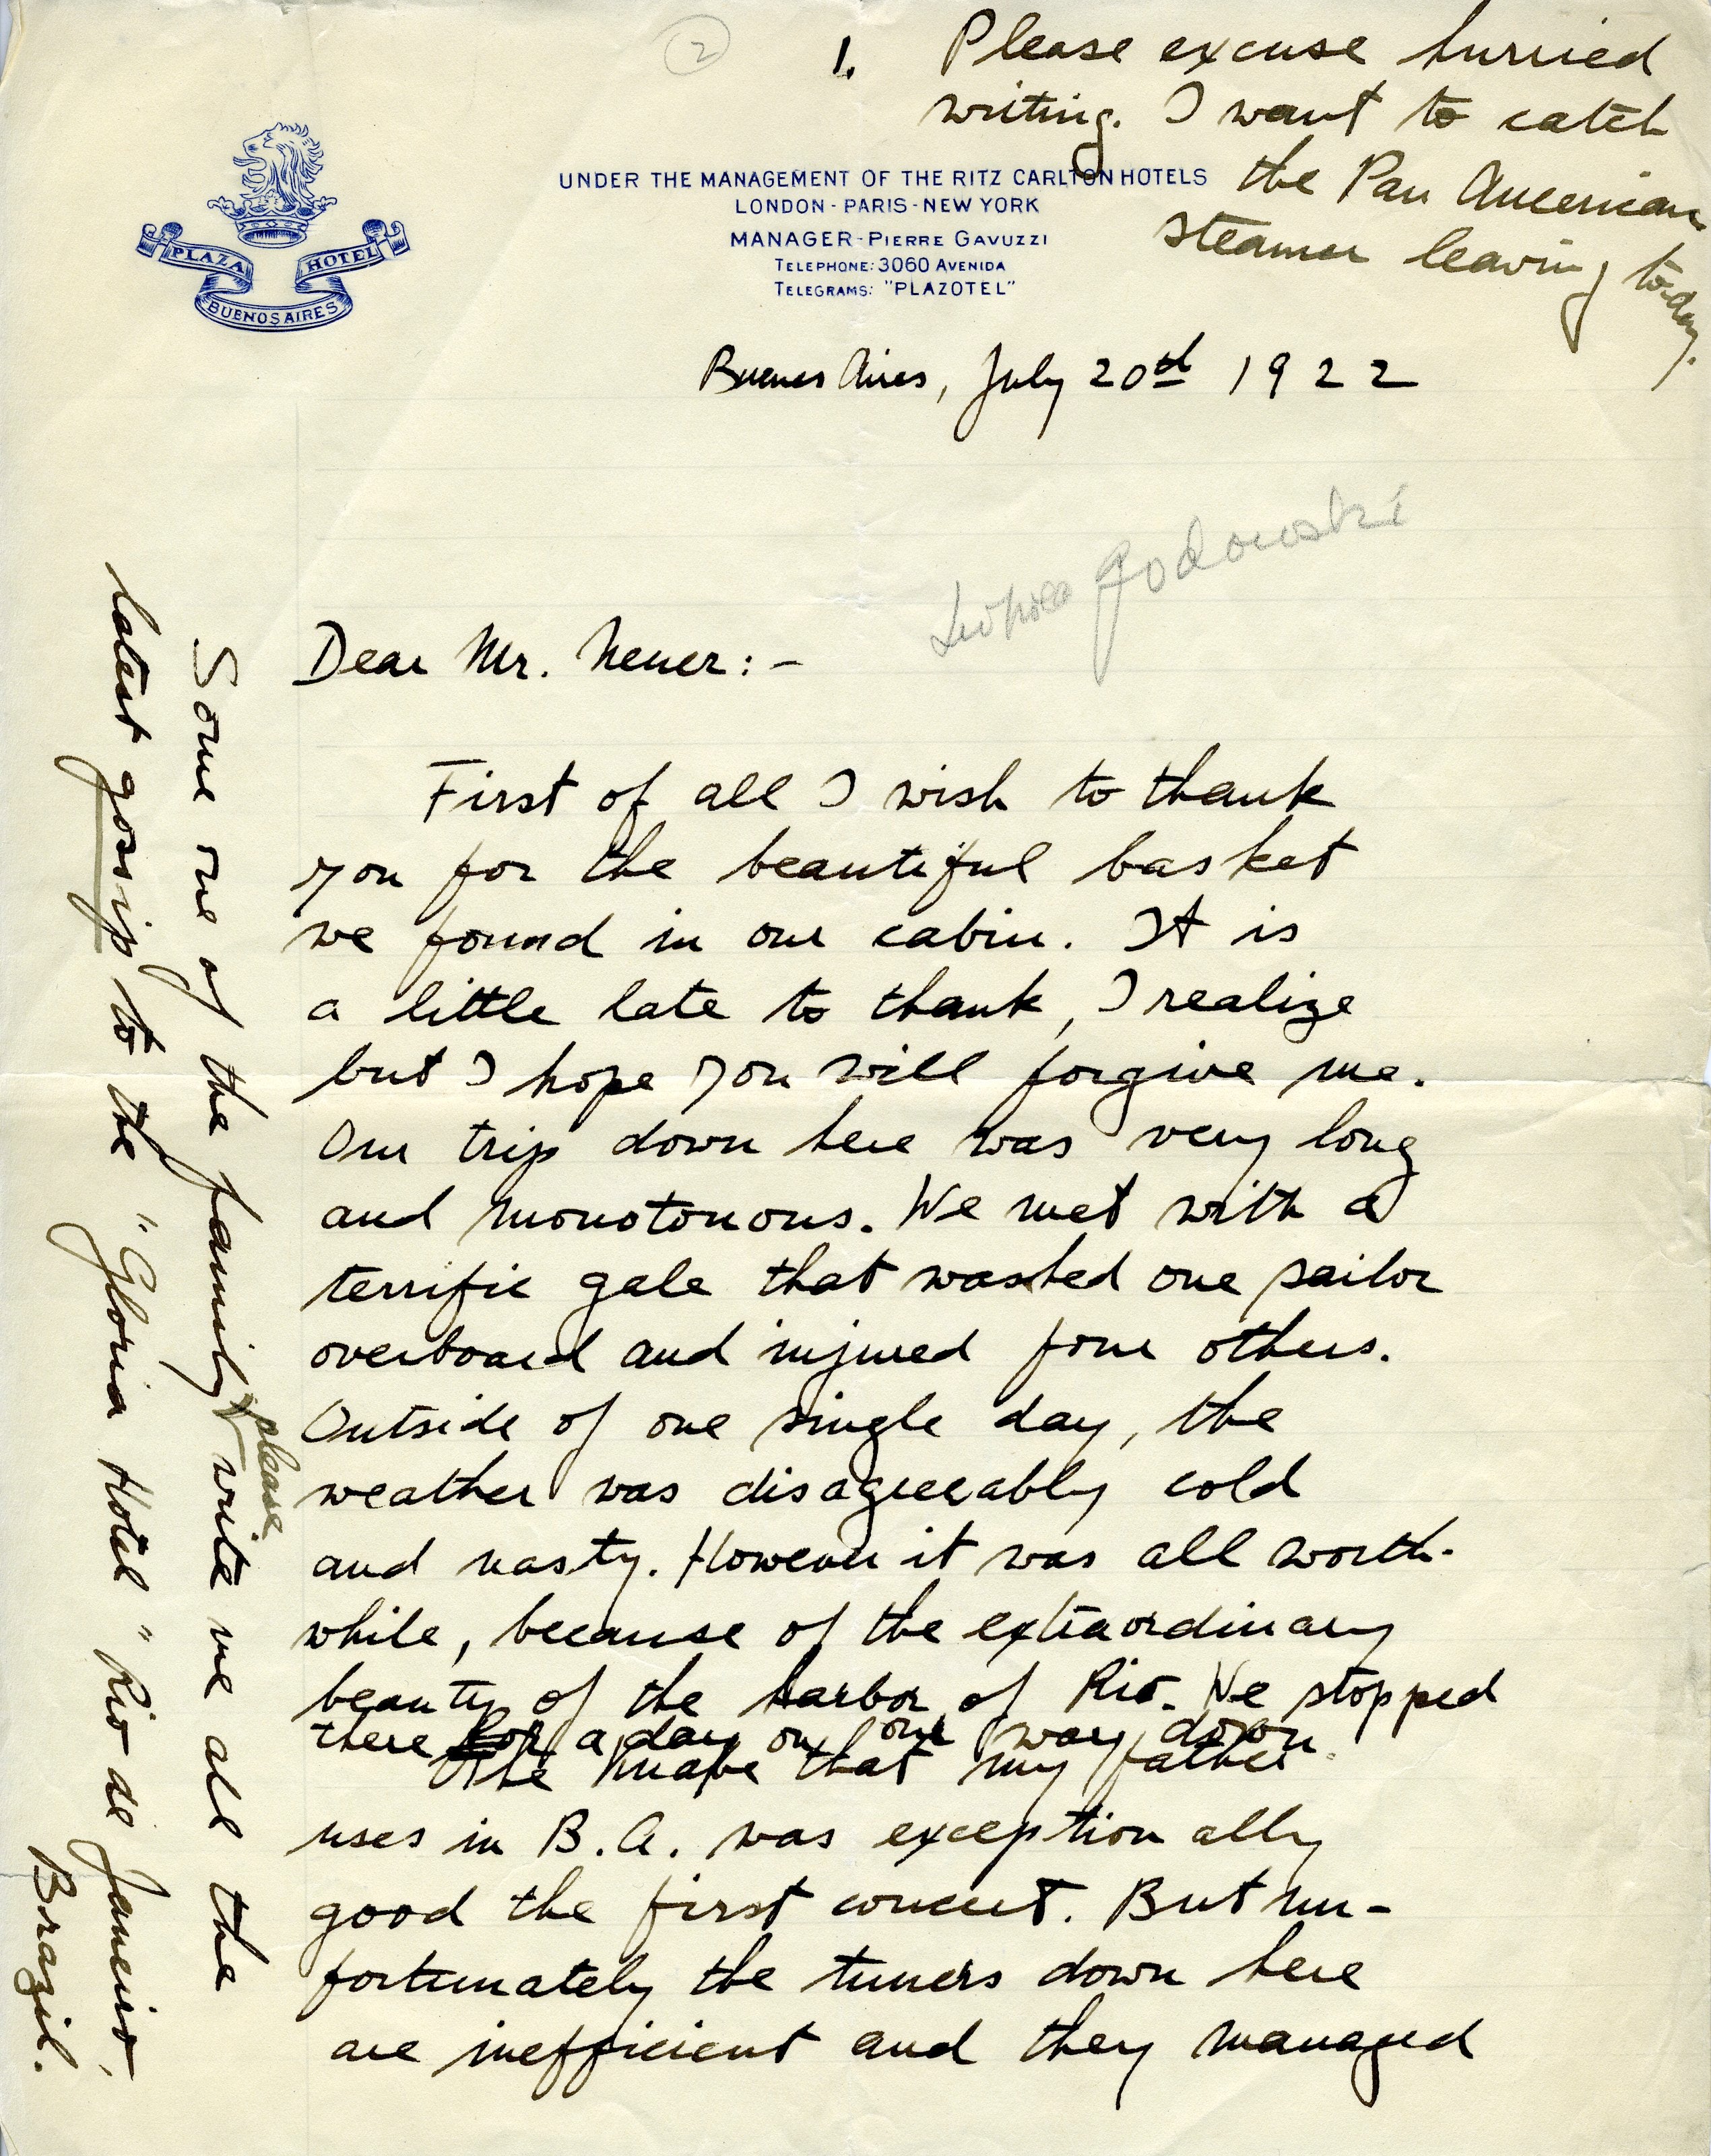 2
1. Please excuse hurried
writing. I want to catch
the Pan American
steamer leaving to-day.
PLAZA HOTEL
BUENOS AIRES
UNDER THE MANAGEMENT OF THE RITZ CARLTON HOTELS
LONDON - PARIS - NEW YORK
MANAGER - PIERRE GAVUZZI
TELEPHONE: 3060 AVENIDA
TELEGRAMS: "PLAZOTEL"
Buenos Aires, July 20th 1922
Godowski
Dear Mr. Neuer:-
First of all I wish to thank
you for the beautiful basket
we found in our cabin. It is
a little late to thank, I realize
but I hope you will forgive me.
Our trip down here was very long
and monotonous. We met with a
terrific gale that washed one sailor
overboard and injured four others.
Outside of one single day, the
weather was disagreeably cold
and nasty. However it was all worth-
while, because of the extraordinary
beauty of the harbor of Rio. We stopped
there for a day on our way down.
The Knabe that my father
uses in B.A. was exceptionally
good the first concert. But un-
fortunately the tuners down here
are inefficient and they managed
Some one of the family please write me all the
latest gossip to the "Gloria Hotel" Rio de Janeiro,
Brazil.